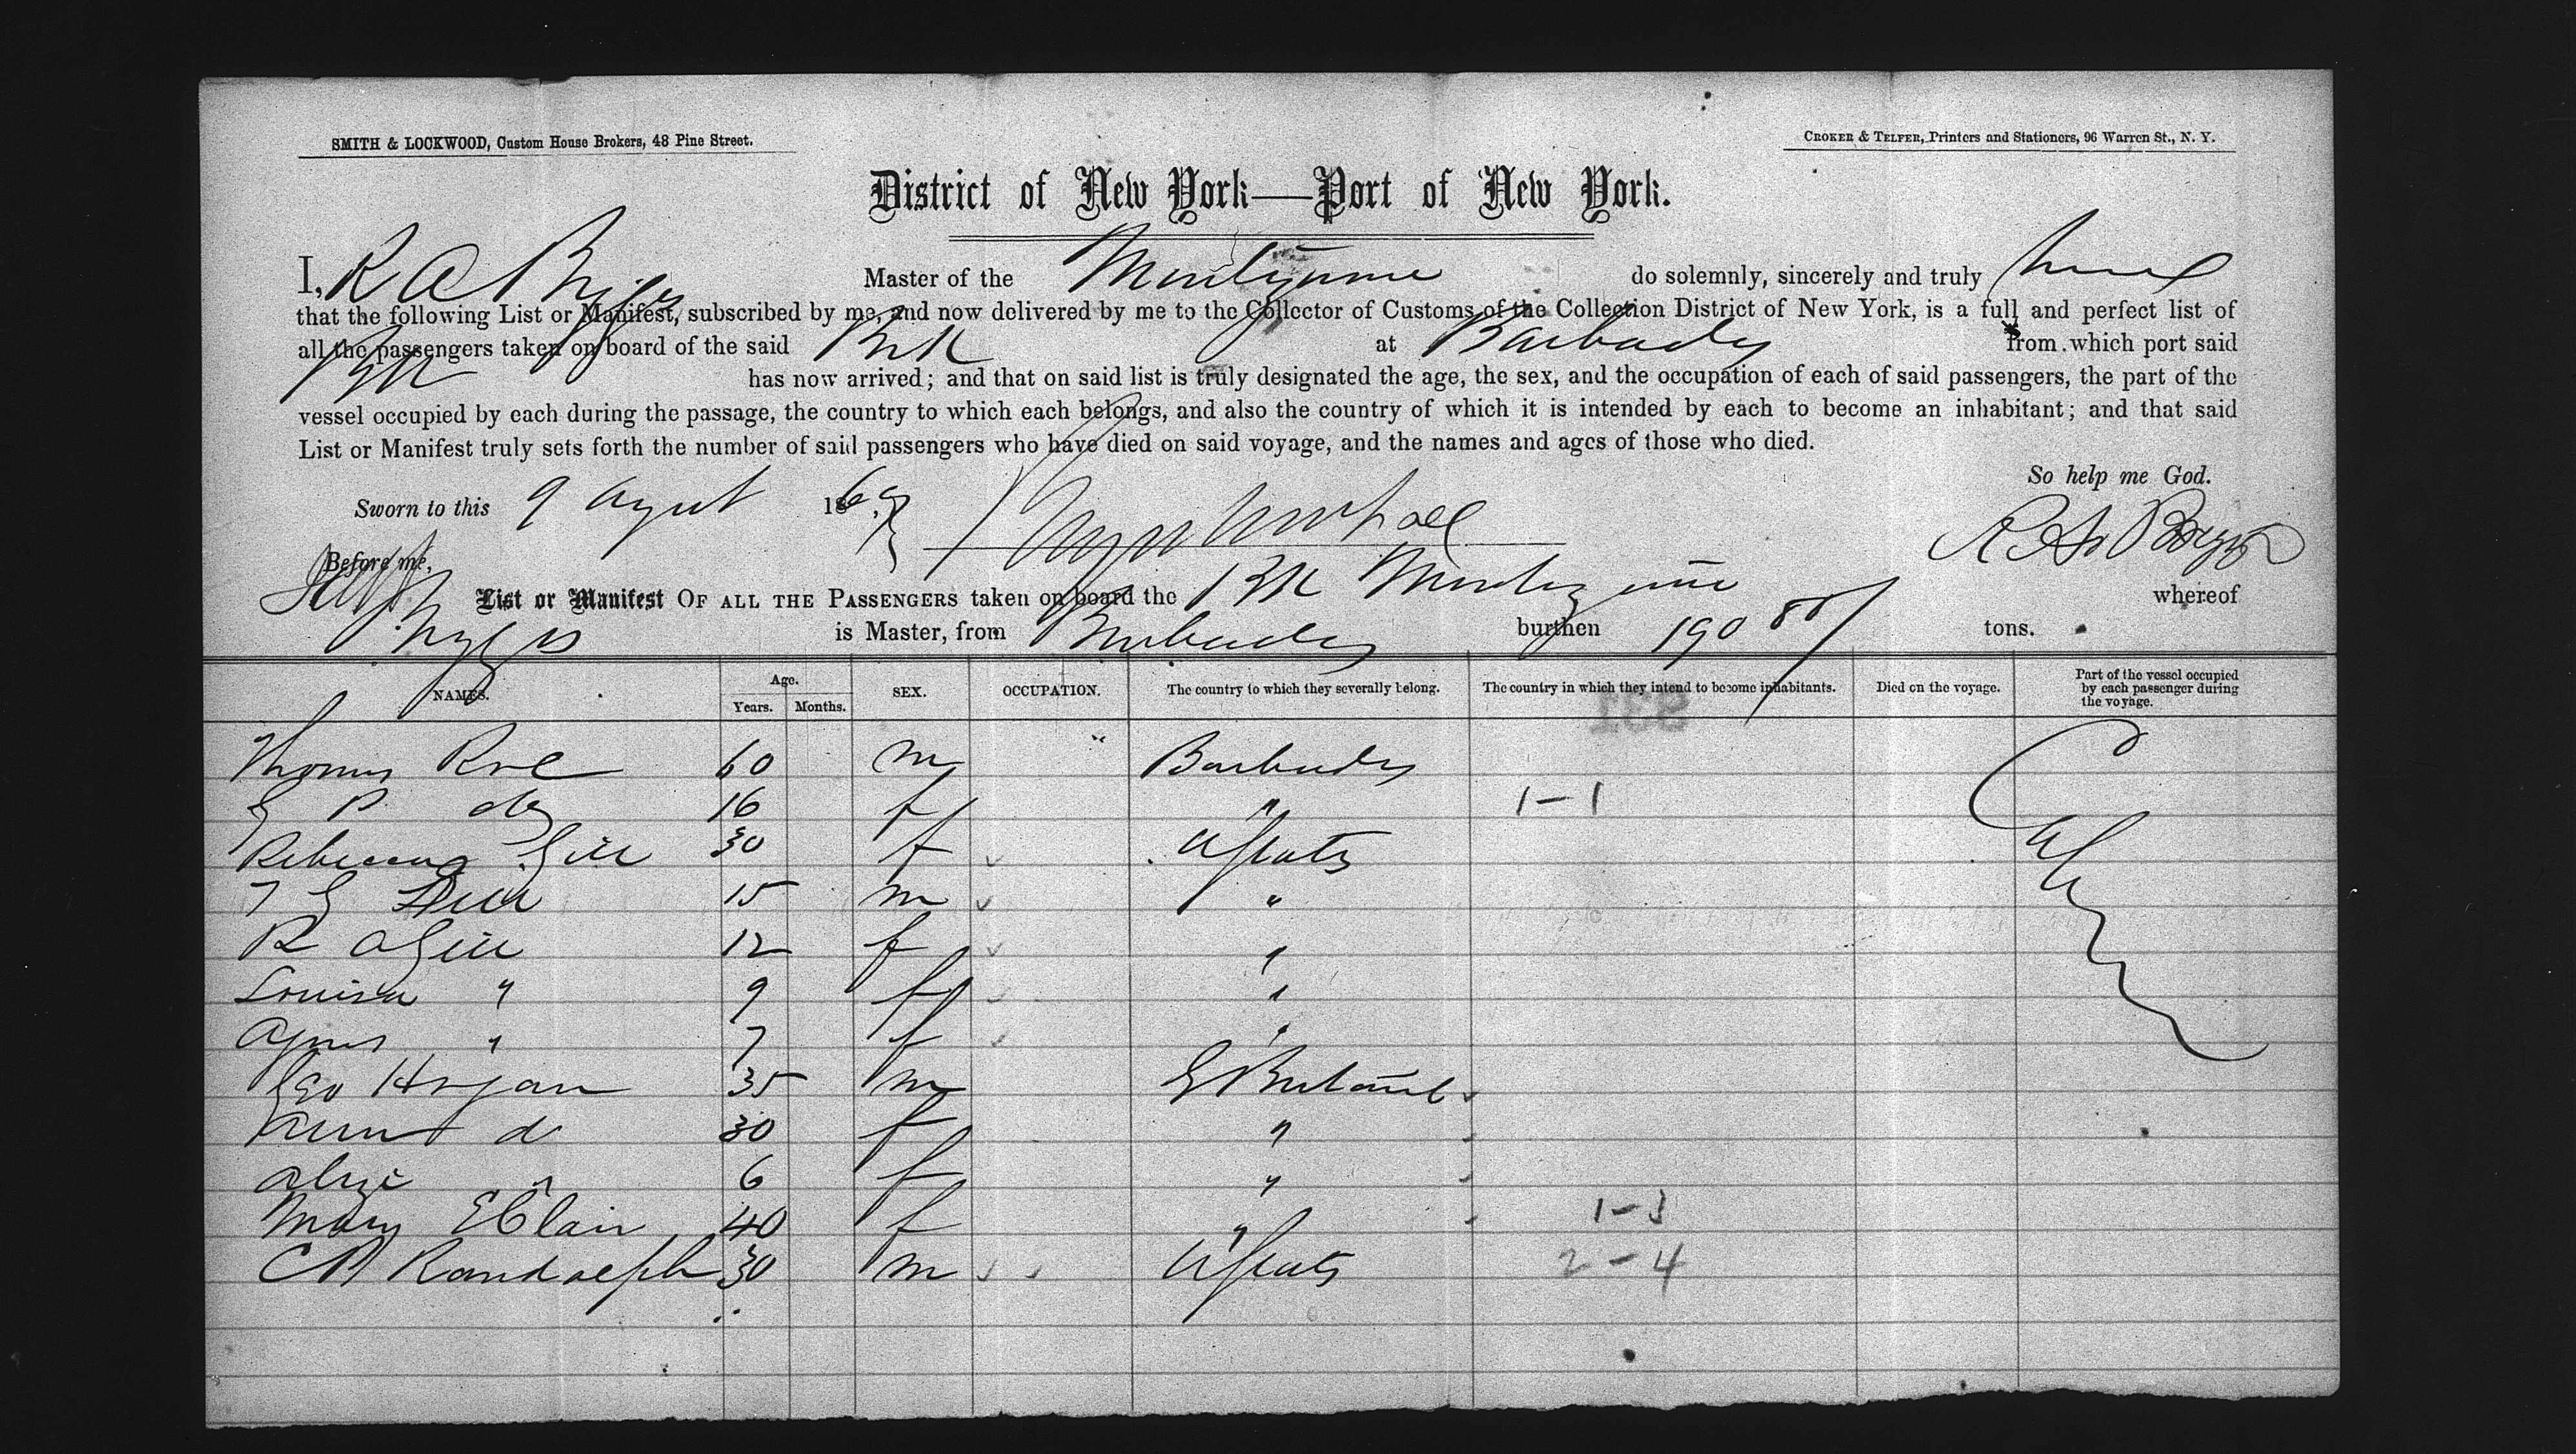 SMITH & LOCKWOOD, Custom House Brokers, 48 Pine Street.
CROKER & TELFER, Printers and Stationers, 96 Warren St., N. Y.
District of New York—Port of New York.
I, R A Master of the do solemnly, sincerely and truly
that the following List or Manifest, subscribed by me, and now delivered by me to the Collector of Customs of the Collection District of New York, is a full and perfect list of
all the passengers taken on board of the said Brk at Barbados from which port said
has now arrived; and that on said list is truly designated the age, the sex, and the occupation of each of said passengers, the part of the
vessel occupied by each during the passage, the country to which each belongs, and also the country of which it is intended by each to become an inhabitant; and that said
List or Manifest truly sets forth the number of said passengers who have died on said voyage, and the names and ages of those who died.
So help me God.
Sworn to this 9 August 1869
Before me,
List or Manifest OF ALL THE PASSENGERS taken on board the Brk whereof
is Master, from Barbados burthen 190 tons.
NAMES. Age. Years. Months. SEX. OCCUPATION. The country to which they severally belong. The country in which they intend to become inhabitants. Died on the voyage. Part of the vessel occupied by each passenger during the voyage.
Thomas 60 m " Barbados Cabin
16 f " 1-1
Rebecca Gill 30 f U States
15 m "
R A Gill 12 f "
Louisa " 9 f "
Agnes " 7 f "
Geo Hogan 35 m G Britain
30 f "
6 f "
Mary 40 f " 1-3
Randolph 30 m U States 2-4